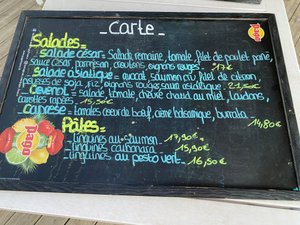 _Carte_
Pago
Salades=
- salade césar = Salade romaine, tomate, filet de poulet pané,
sauce césar, parmesan, croutons, oignons rouges 17€
- salade asiatique = avocat, saumon cru, filet de citron,
pousses de soja, riz, oignons rouges, sauce asiatique
- Cevenol = salade, tomate, chèvre chaud au miel, lardons,
carottes rapées 15,50€
- caprese = tomates coeur de boeuf, crème balsamique, burrata
14,80€
Pago
Pâtes=
- linguines au saumon 17,90€
- linguines carbonara 15,90€
- linguines au pesto vert 16,50€